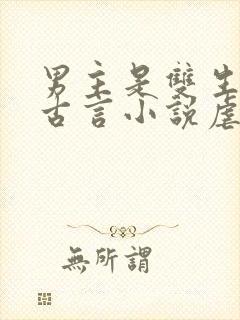 男主是雙生
古言小說虐
無所謂